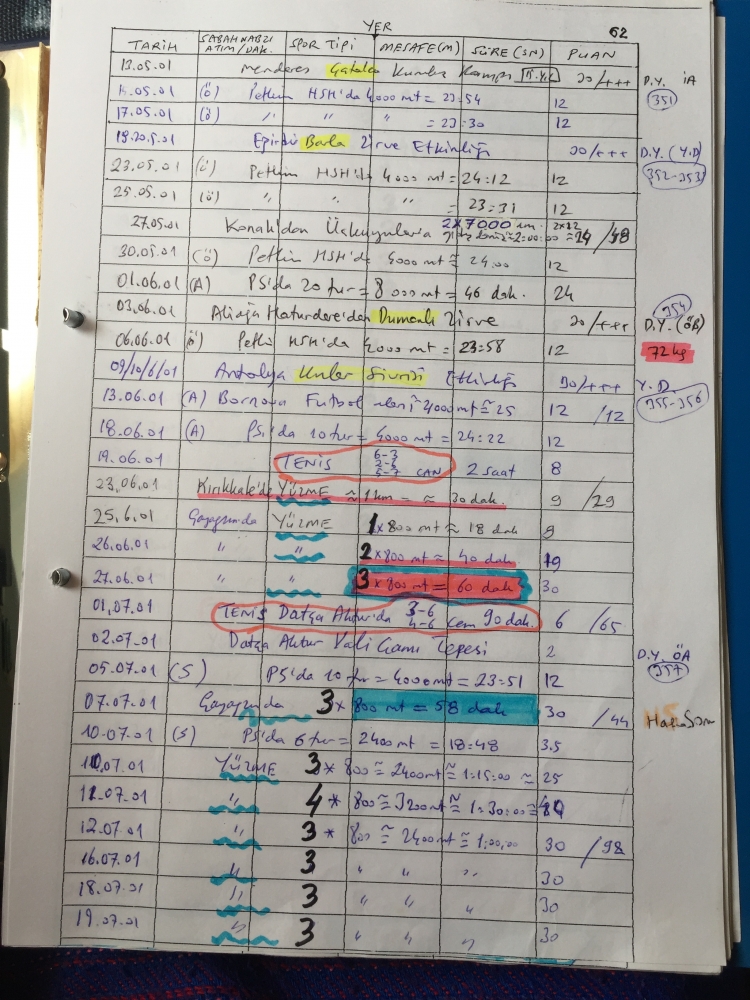 YER 62
TARİH SABAH NABZI ATIM/DAK. SPOR TİPİ MESAFE(M) SÜRE(SN) PUAN
13.05.01 Menderes Çatalca Kampı 30/+++ D.Y. İA
351
15.05.01 (Ö) Petkim HSH'da 4000 mt = 23:54 12
17.05.01 (Ö) " " " = 23:30 12
19.20.5.01 Eğirdir Barla Zirve Etkinliği 30/+++ D.Y. (Y.D)
352-353
23.05.01 (Ö) Petkim HSH'da 4000 mt = 24:12 12
25.05.01 (Ö) " " " = 23:31 12
27.05.01 Konak'dan Üçkuyulara 2x7000 m. 2x12
≈ 2:00:00 = 24 /48
30.05.01 (Ö) Petkim HSH'da 4000 mt ≈ 24:00 12
01.06.01 (A) PS'da 20 tur = 8000 mt = 46 dak. 24
354
03.06.01 Aliağa Dumanlı Zirve 30/+++ D.Y. (ÖB)
06.06.01 (Ö) Petkim HSH'da 4000 mt = 23:58 12 72 kg
09/10/6/01 Antalya Kızlar Sivrisi Etkinliği 30/+++ Y.D.
355-356
13.06.01 (A) Bornova Futbol 4000mt ≈ 25 12 /12
18.06.01 (A) PS'da 10 tur = 4000 mt = 24:22 12
19.06.01 TENİS 6-3 CAN 2 saat 8
23.06.01 Kırıkkale'de YÜZME ≈ 1 km = ≈ 30 dak. 9 /29
25.6.01 YÜZME 1 x 800 mt ≈ 18 dak 9
26.06.01 " " 2 x 800 mt ≈ 40 dak 19
27.06.01 " " 3 x 800 mt = 60 dak 30
01.07.01 TENİS Datça Aktur'da 3-6 4-6 Cem 90 dak. 6 /65
02.07.01 Datça Aktur Tepesi 2 D.Y. ÖA
357
05.07.01 (S) PS'da 10 tur = 4000mt = 23:51 12
07.07.01 3 x 800 mt = 58 dak 30 /44
10.07.01 (S) PS'da 6 tur = 2400 mt = 18:48 3.5
10.07.01 YÜZME 3 * 800 ≈ 2400mt ≈ 1:15:00 ≈ 25
11.07.01 " 4 * 800 ≈ 3200 mt ≈ 1:30:00 ≈
12.07.01 " 3 * 800 ≈ 2400 mt ≈ 1:00:00 30 /98
16.07.01 " 3 " " " 30
18.07.01 " 3 " " " 30
19.07.01 " 3 " " " 30